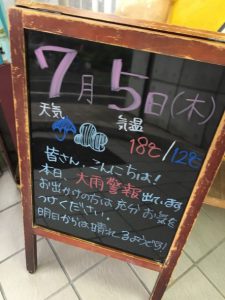 7月5日(木)
天気 気温
18℃/12℃
皆さん、こんにちは!
本日、大雨警報出ています
お出かけの方は充分お気を
つけください。
明日からは晴れるようです!